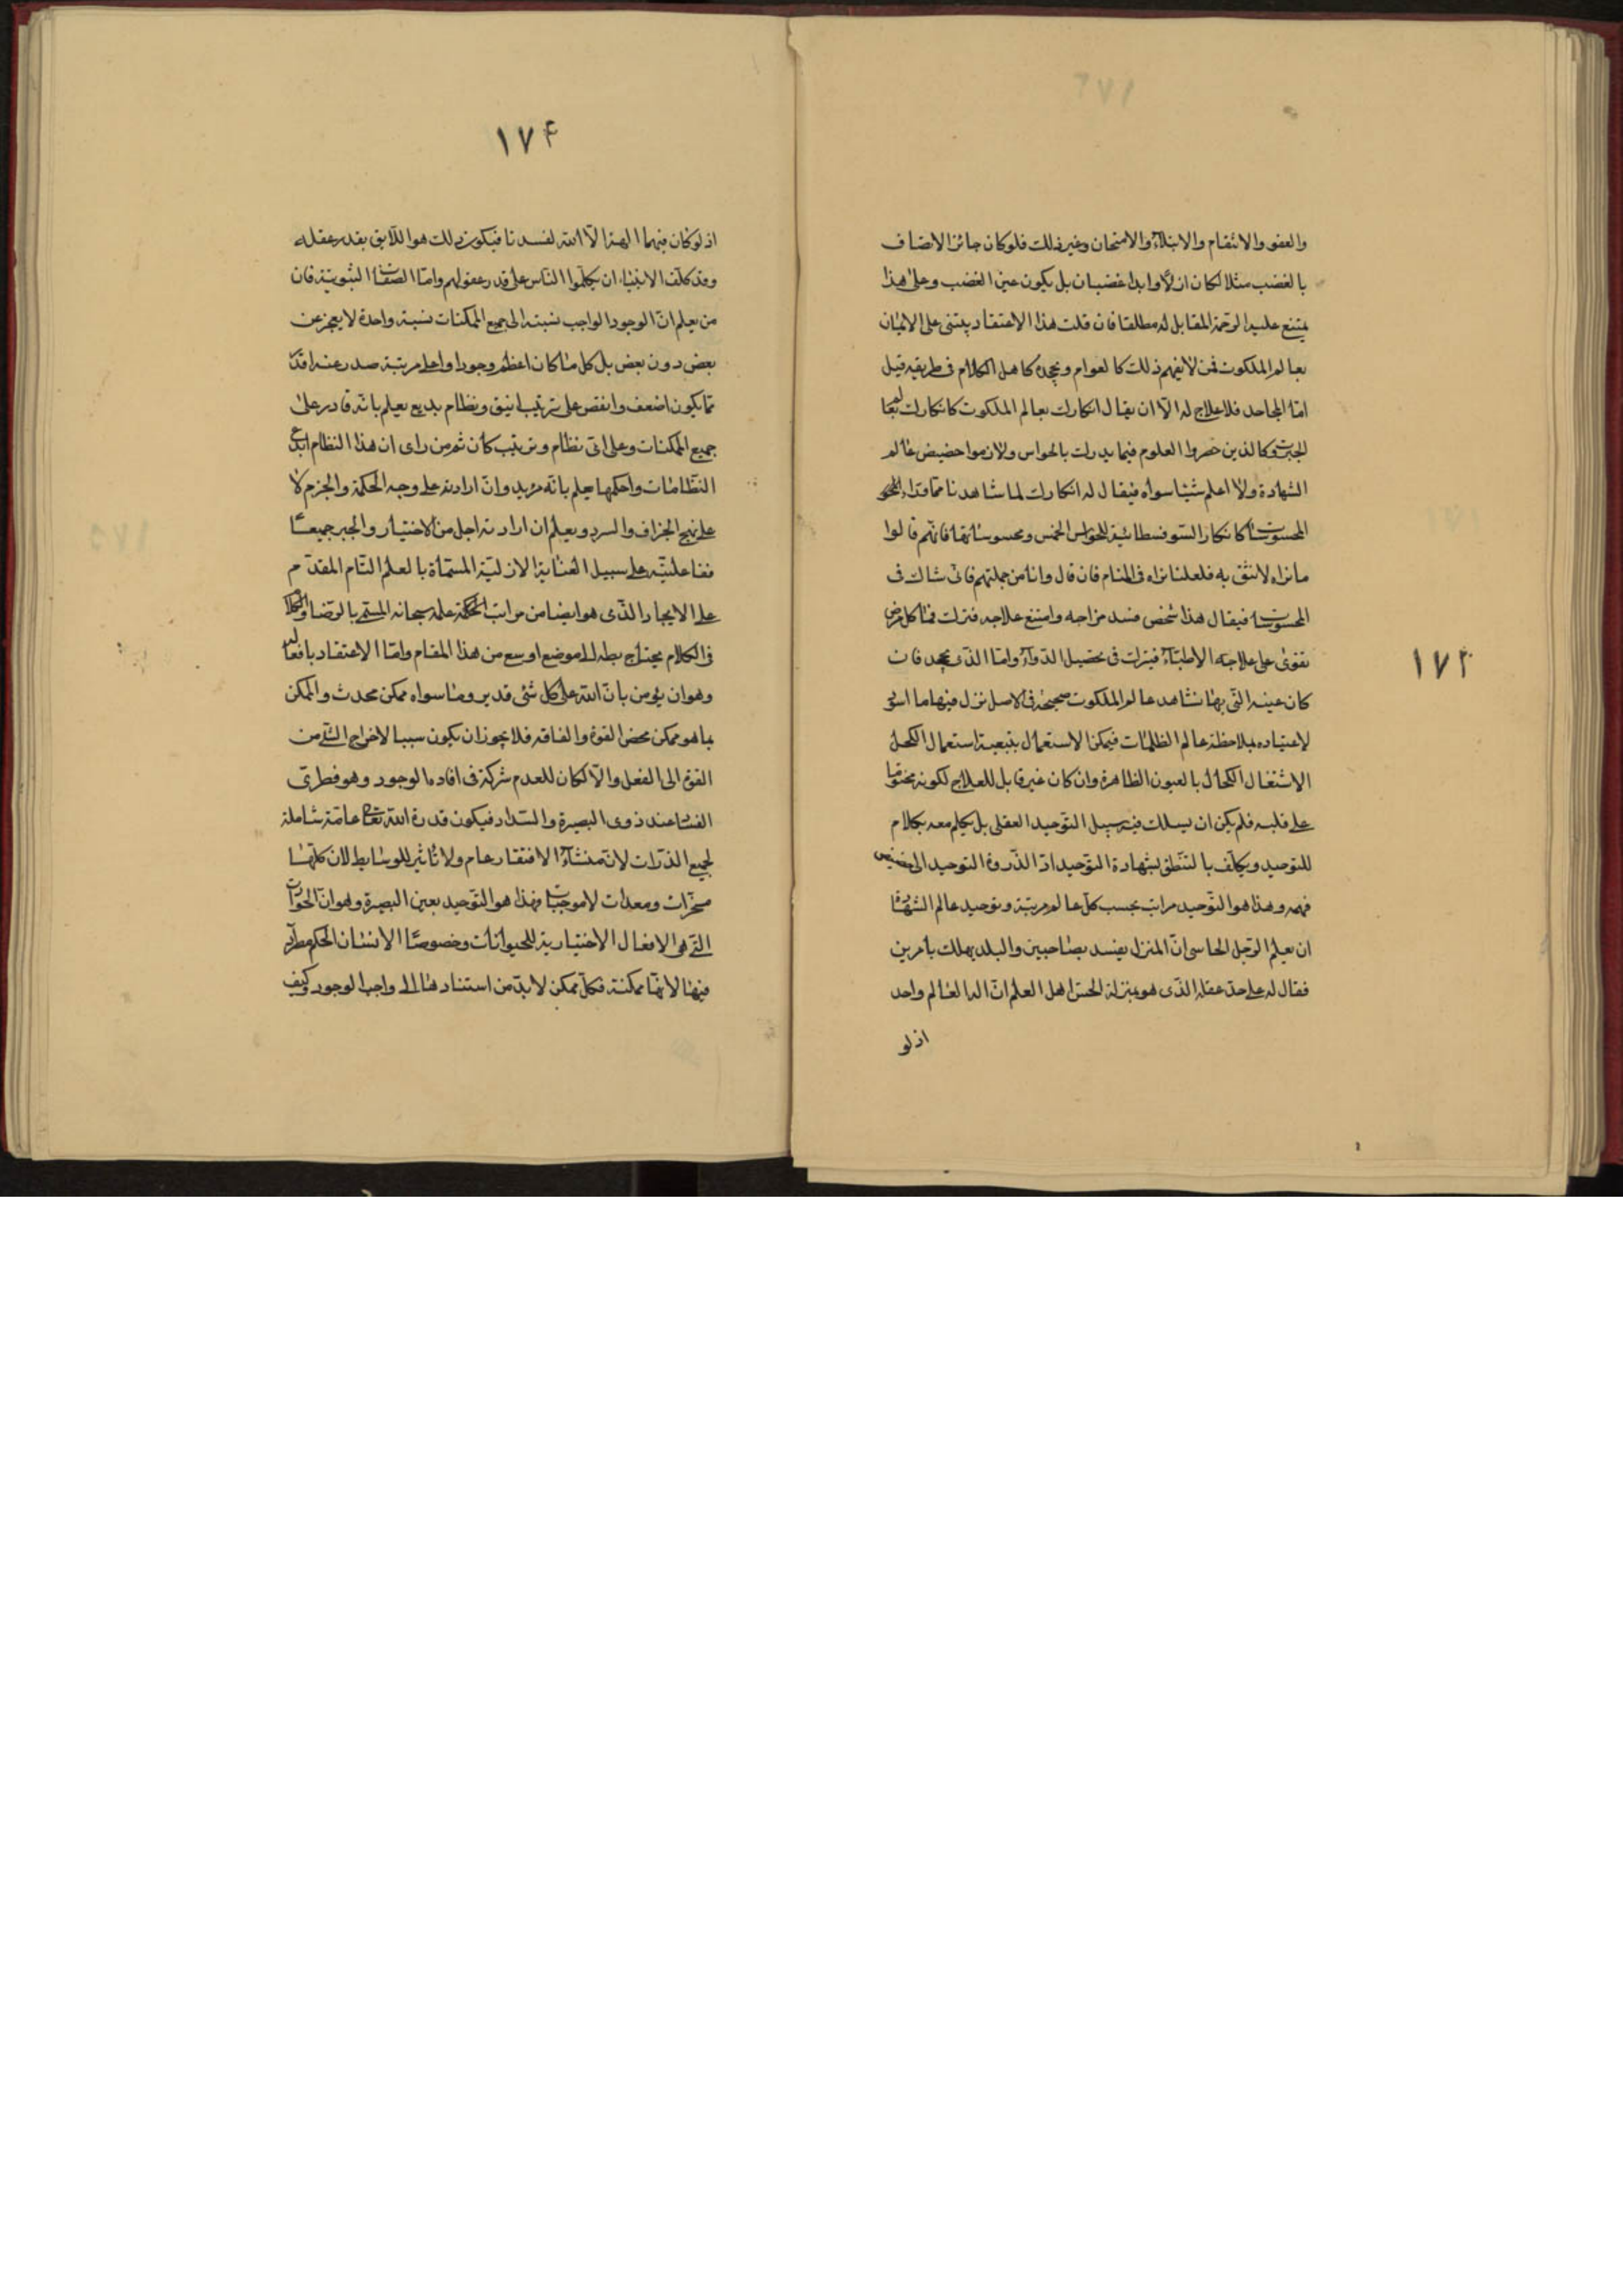 والعفو والانتقام والابتلاء والامتحان وغير ذلك فلو كان جائز الاتصاف
بالغضب مثلا لكان ازلا وابدا غضبان بل يكون عين الغضب وعلى هذا
يمتنع عليه الرحمة المقابل له مطلقا فان قلت هذا الاعتقاد يبتنى على الايمان
بعالم الملكوت فمن لا يفهم ذلك كالعوام ويجحده كاهل الكلام فى طريقه قيل
امّا الجاحد فلا علاج له الّا ان يقال انكارك بعالم الملكوت كانكارك لعالم
الجبروت وكالذين حصروا العلوم فيما يدرك بالحواس ولازموا حضيض عالم
الشهادة ولا اعلم شيئا سواه فيقال له انكارك لما شاهدنا مما وراء
المحسوسات كانكار السوفسطائية للحواس الخمس ومحسوساتها فانّهم قالوا
ما نراه لا نثق به فلعلنا نراه فى المنام فان قال وانا من جملتهم فانى شاك فى
المحسوسات فيقال هذا شخص فسد مزاجه وامتنع علاجه فترك فما كل مرض
تقوى على علاجه الأطبّاء فيترك فى تحصيل الدواء وامّا الذى يجحد فان
١٧٣
كان عينه التى بها نشاهد عالم الملكوت صحيحة فى الاصل نزل فيها ما اسود
لاعتياده بملاحظة عالم الظلمات فيمكن الاستعمال بتبعية استعمال الكحل
الاشتغال الكحال بالعيون الظاهرة وان كان غير قابل للعلاج لكونه مختوما
على قلبه فلم يكن ان يسلك فيه سبيل التوحيد العقلى بل يكلم معه بكلام
للتوحيد ويكلّف بالتنطق بشهادة التوحيد اذ الذروة التوحيد الى حضيض
فهمه وهذا هو التوحيد مراتب بحسب كل عالم مرتبة وتوحيد عالم الشهادة
ان يعلم الرجل الحاسى انّ المنزل يفسد بصاحبين والبلد يهلك بأمرين
فقال له على حد عقله الذى هو بمنزلة الحس اهل العلم انّ اله العالم واحد
اذ لو
١٧۴
اذ لو كان فيهما الهة الّا الله لفسدتا فيكون ذلك هو اللّايق بقدر عقله
وقد كلّف الانبياء ان يكلّموا الناس على قدر عقولهم وامّا الصفات الثبوتية فان
من يعلم انّ الوجود الواجب نسبته الى جميع الممكنات نسبة واحدة لا يعجز عن
بعض دون بعض بل كل ما كان اعظم وجودا واعلى مرتبة صدر عنه اقدم
مما يكون اضعف وانقص على ترتيب انيق ونظام بديع يعلم بانّه قادر على
جميع الممكنات وعلى اى نظام وترتيب كان ثم من راى ان هذا النظام ابدع
النّظامات واحكمها علم بانّه مريد وانّ ارادته على وجه الحكمة والجزم لا
على نهج الجزاف والسرد ويعلم ان ارادته اجل من الاختيار والجبر جميعا
ففاعليته على سبيل العناية الازلية المسماة بالعلم التام المقدّم
على الايجاد الّذى هو ايضا من مراتب الحكمة علمه سبحانه المسمّى بالرضا والكلام
فى الكلام يحتاج بطه الى موضع اوسع من هذا المقام وامّا الاعتقاد بافعاله
وهو ان يؤمن بانّ الله على كل شئ قدير وما سواه ممكن محدث والممكن
بما هو ممكن محض القوة والفاقه فلا يجوز ان يكون سببا لاخراج الشئ من
القوة الى الفعل والّا لكان للعدم شركة فى افادة الوجود وهو فطرى
الفسا عند ذوى البصيرة والسّداد فيكون قدرة الله تعالى عامّة شاملة
لجميع الذّرات لانّ منشاء الافتقار عام ولا تأثير للوسايط لان كلّها
مسخّرات ومعدات لا موجبات فهذا هو التوحيد بعين البصيرة وهو انّ الحوادث
التى هى الافعال الاختيارية للحيوانات وخصوصا الانسان الحكم مطرد
فيها لانها ممكنة فكل ممكن لا بد من استنادها الى واجب الوجود وكيف